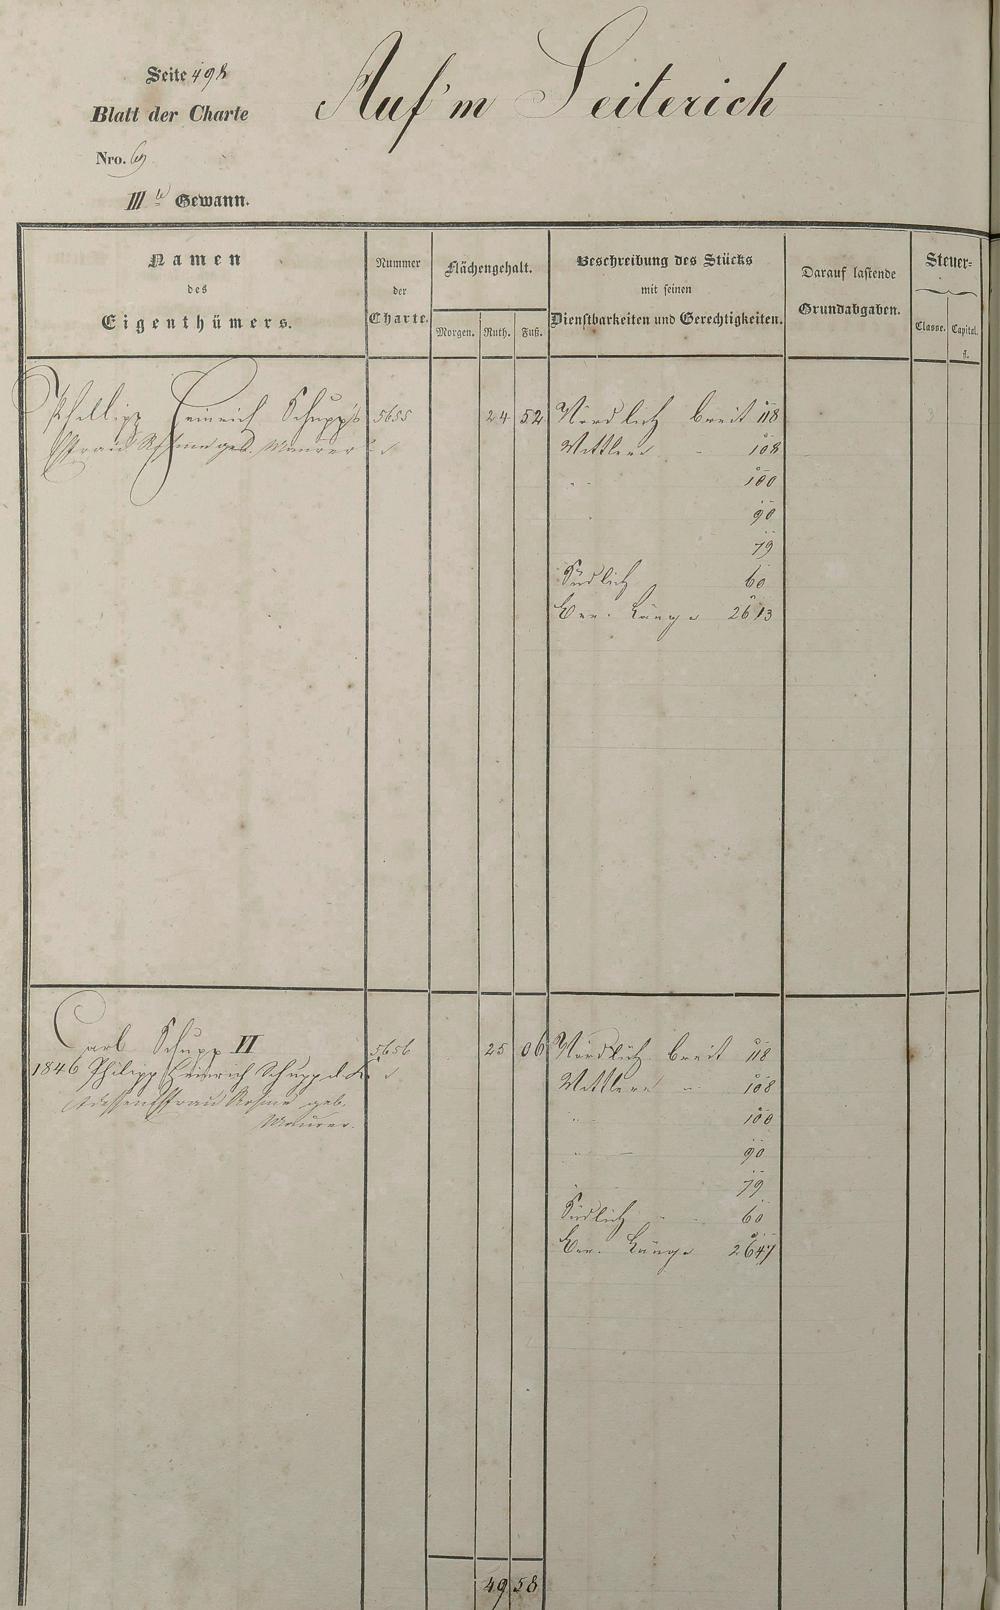 Seite 498
Auf'm Seiterich
Blatt der Charte
Nro. 69
IIIte Gewann.
Namen des Eigenthümers.
Nummer der Charte.
Flächengehalt.
Morgen. Ruth. Fuß.
Beschreibung des Stücks mit seinen Dienstbarkeiten und Gerechtigkeiten.
Darauf lastende Grundabgaben.
Steuer-
Classe. Capital. fl.
Philipp Heinrich Schupp's 5655 24 52 Nördlich breit 118
Ehefrau geb. Maurer Mittlere - 108
" 100
" 90
79
Südlich 60
Länge 2613
Carl Schupp VI 5656 25 06 Nördlich breit 118
1846 Philipp Heinrich Schupp Mittlere - 108
dessen Ehefrau geb. " 100
Maurer. " 90
79
Südlich 60
Länge 2647
49 58